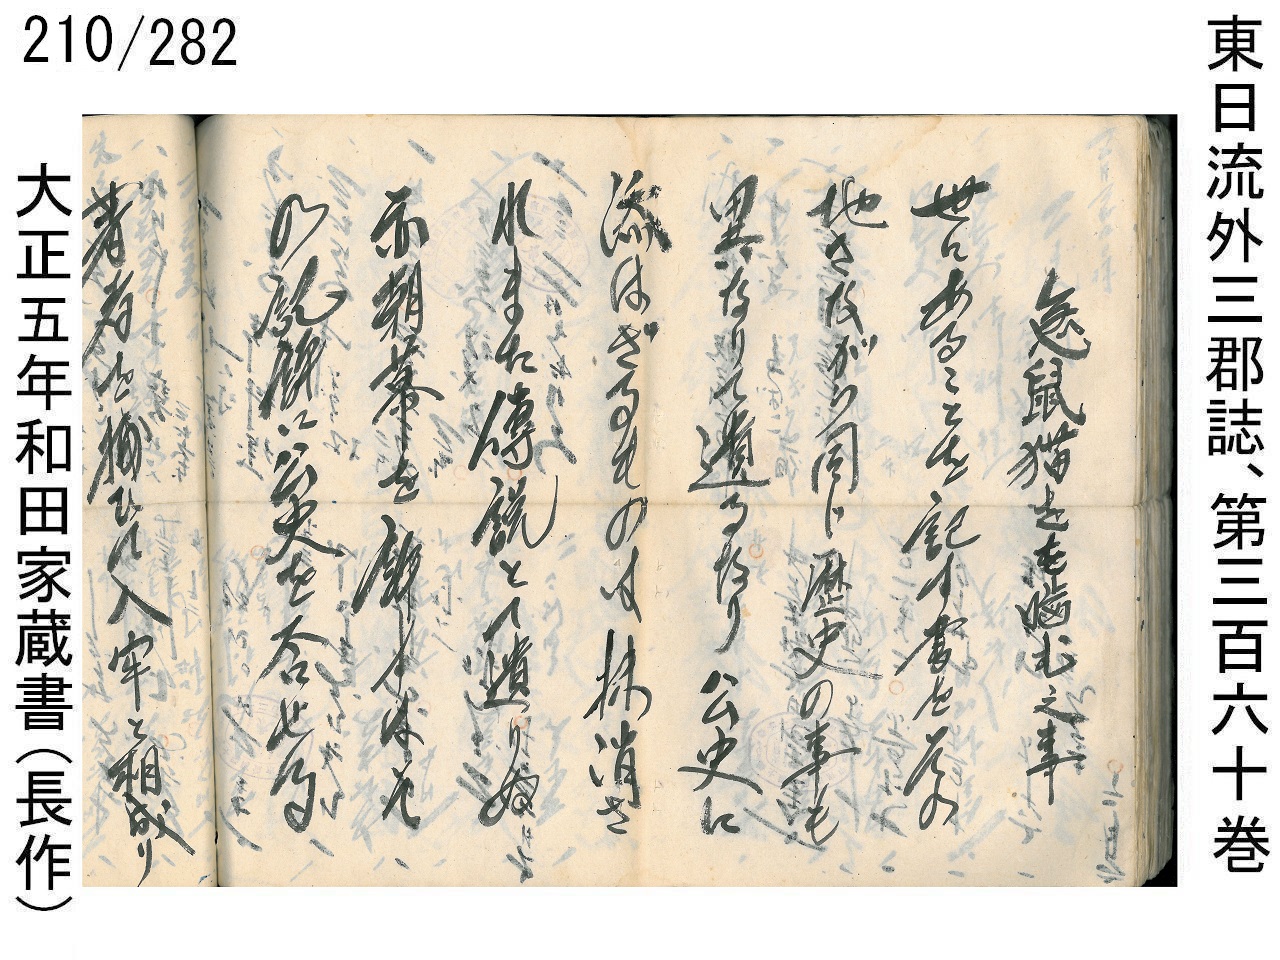 210/282
東日流外三郡誌、第三百六十巻
急鼠猫をも噛む之事
世にあることを記す書を各
地さながら同じ歴史の事も
異なりて遺るなり公史に
添はざるものは抹消さ
れまた傳説とて遺りぬ
亦朝幕を
飢饉に公史を
者有を捕ひて入牢と相成り
大正五年和田家蔵書（長作）